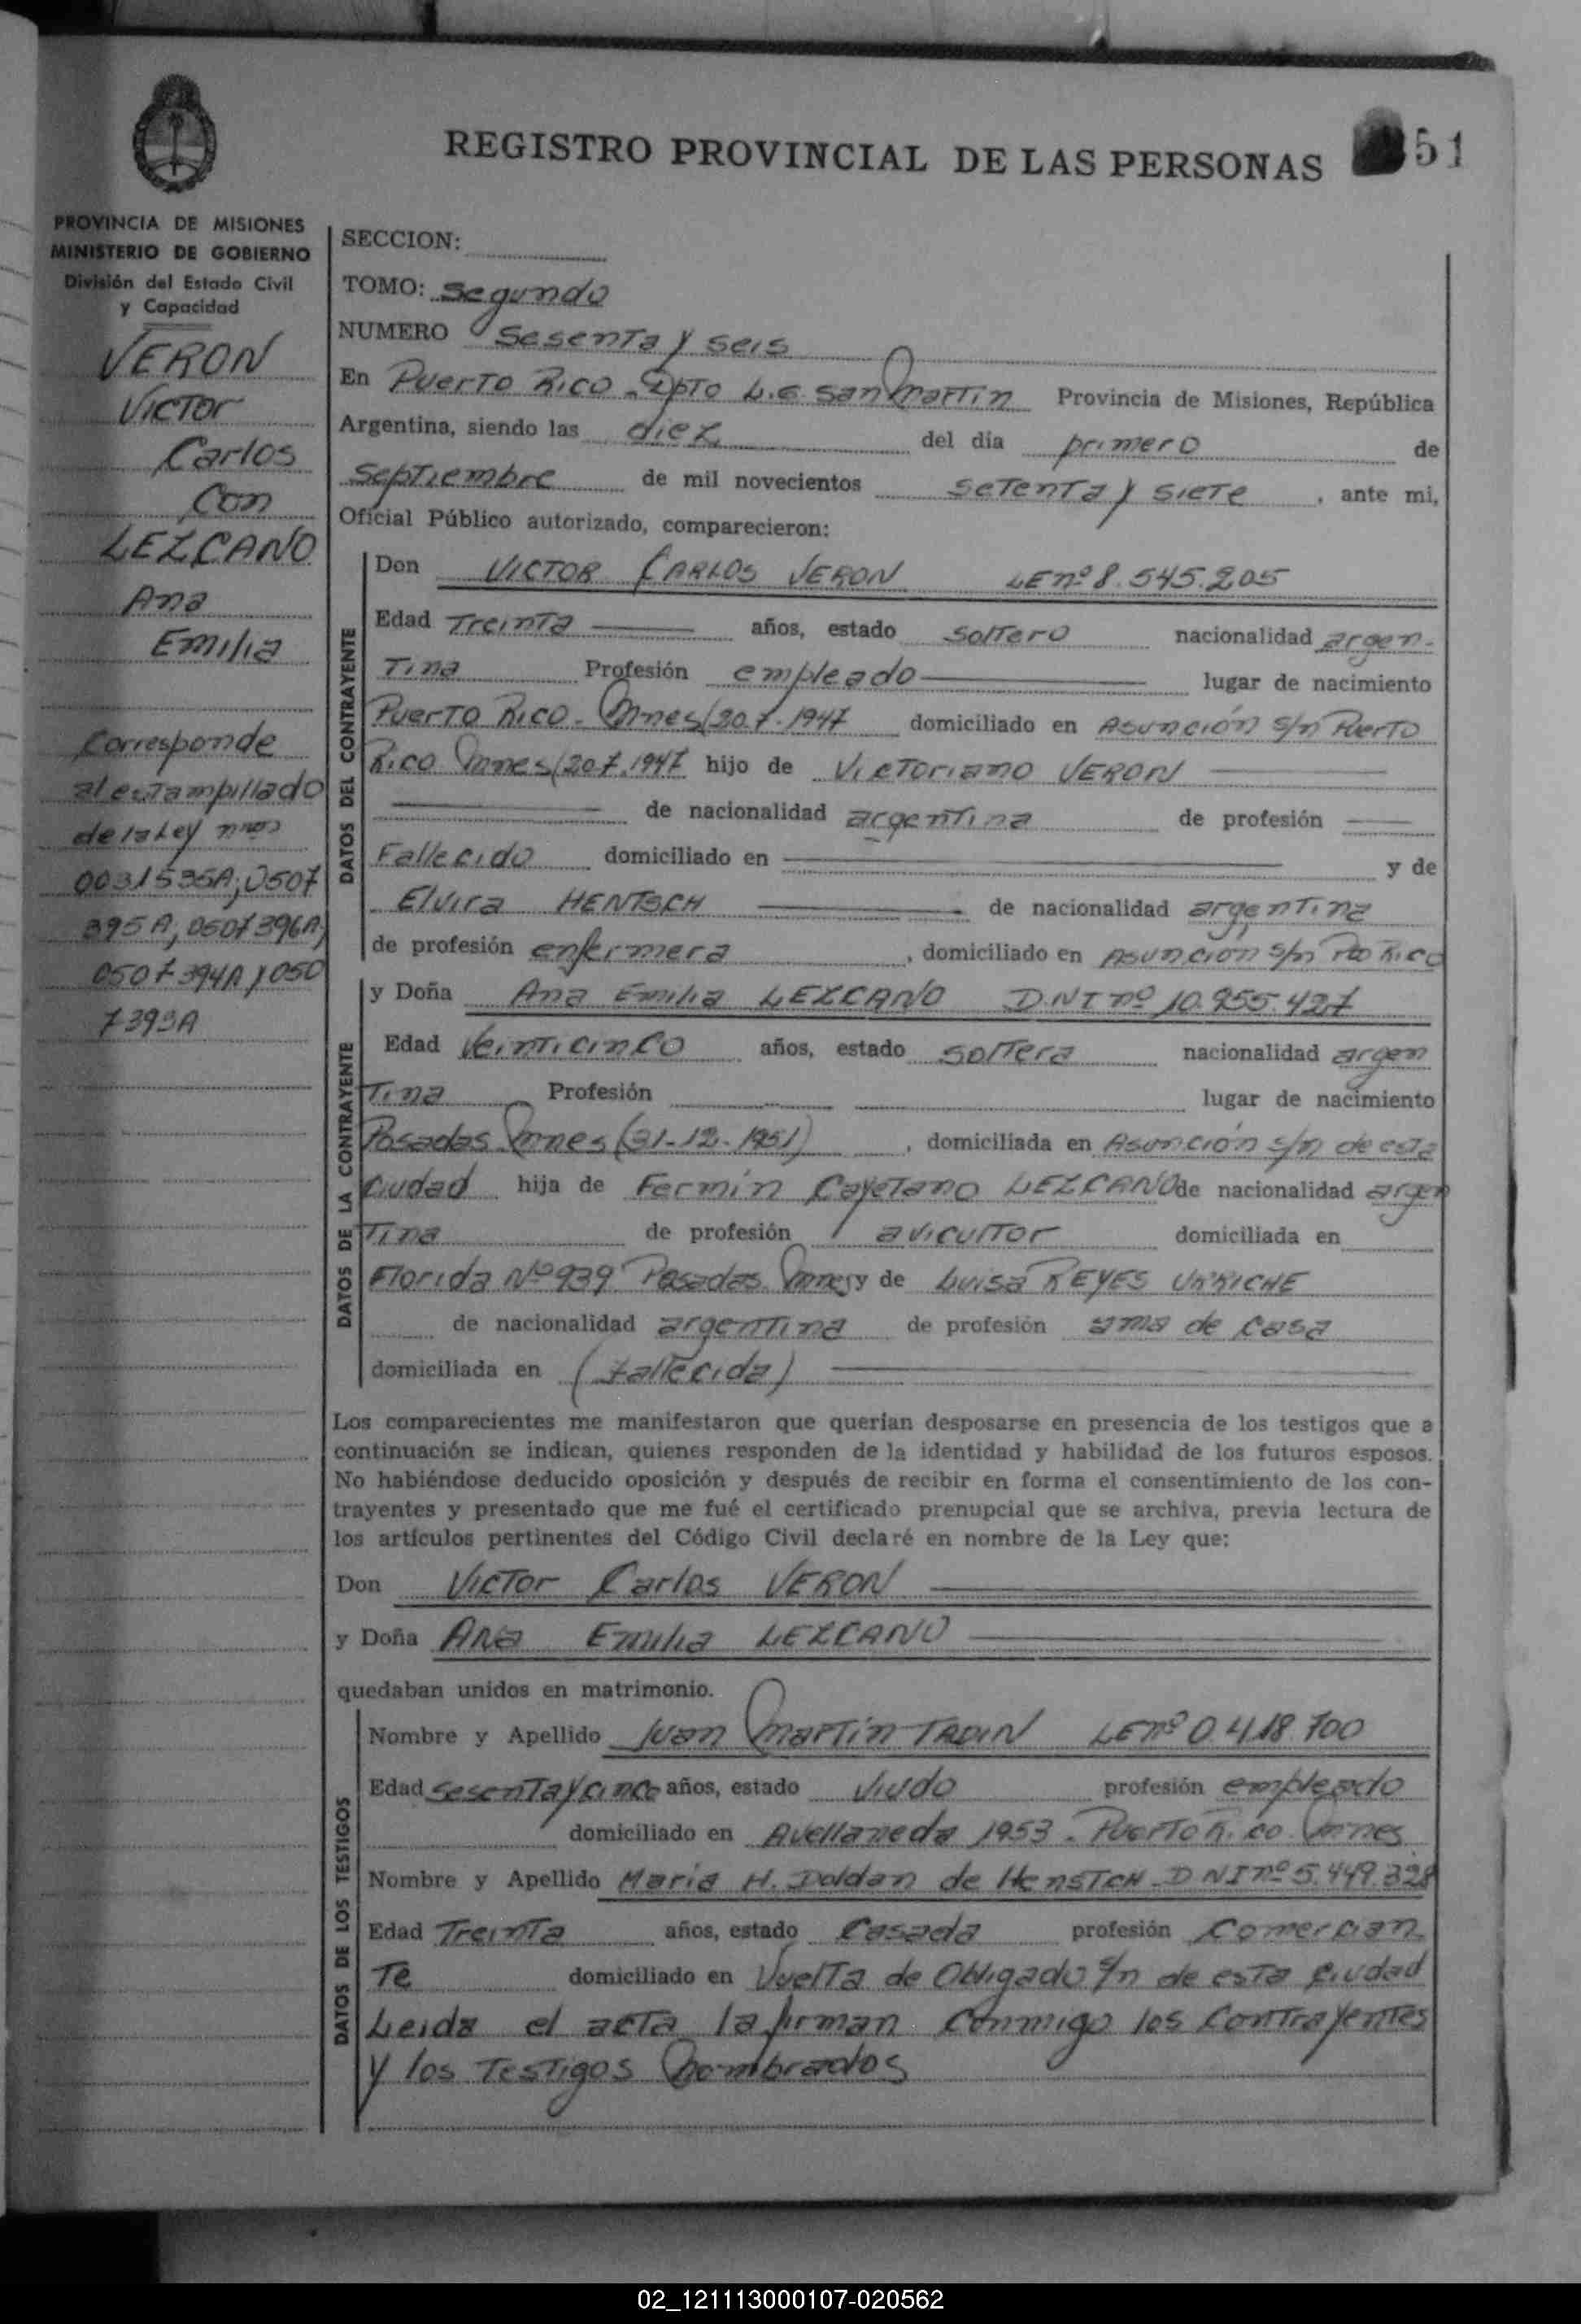 REGISTRO PROVINCIAL DE LAS PERSONAS
51
PROVINCIA DE MISIONES
MINISTERIO DE GOBIERNO
División del Estado Civil
y Capacidad
VERON
Victor
Carlos
con
LEZCANO
Ana
Emilia
Corresponde
al estampillado
de la Ley nros
0031535A; 0507
395A, 0507396A,
0507394A y 050
7393A
SECCION:
TOMO: Segundo
NUMERO Sesenta y seis
En Puerto Rico - Dpto L.G. San Martin Provincia de Misiones, República
Argentina, siendo las diez del día primero de
septiembre de mil novecientos setenta y siete, ante mi,
Oficial Público autorizado, comparecieron:
DATOS DEL CONTRAYENTE
Don VICTOR CARLOS VERON LE nº 8.545.205
Edad Treinta años, estado soltero nacionalidad argen-
tina Profesión empleado lugar de nacimiento
Puerto Rico - Mnes (20.7.1947 domiciliado en Asunción s/n Puerto
Rico Mnes (20.7.1947 hijo de Victoriano VERON
de nacionalidad argentina de profesión
Fallecido domiciliado en y de
Elvira HENTSCH de nacionalidad argentina
de profesión enfermera, domiciliado en Asunción s/n Pto Rico
DATOS DE LA CONTRAYENTE
y Doña Ana Emilia LEZCANO D.N.I nº 10.955.427
Edad Veinticinco años, estado soltera nacionalidad argen
tina Profesión lugar de nacimiento
Posadas Mnes (31-12-1951), domiciliada en Asunción s/n de esta
ciudad hija de Fermín Cayetano LEZCANO de nacionalidad argen
tina de profesión avicultor domiciliada en
Florida Nº 939 Posadas Mnes y de Luisa REYES URRICHE
de nacionalidad argentina de profesión ama de casa
domiciliada en (fallecida)
Los comparecientes me manifestaron que querían desposarse en presencia de los testigos que a
continuación se indican, quienes responden de la identidad y habilidad de los futuros esposos.
No habiéndose deducido oposición y después de recibir en forma el consentimiento de los con-
trayentes y presentado que me fué el certificado prenupcial que se archiva, previa lectura de
los artículos pertinentes del Código Civil declaré en nombre de la Ley que:
Don Victor Carlos VERON
y Doña Ana Emilia LEZCANO
quedaban unidos en matrimonio.
DATOS DE LOS TESTIGOS
Nombre y Apellido Juan Martín TADIN LE nº 0.418.700
Edad sesenta y cinco años, estado Viudo profesión empleado
domiciliado en Avellaneda 1953. Puerto Rico Mnes
Nombre y Apellido María H. Doldan de HENSTCH D N I nº 5.449.328
Edad Treinta años, estado Casada profesión Comercian
te domiciliado en Vuelta de Obligado s/n de esta ciudad
Leida el acta la firman conmigo los Contrayentes
y los Testigos nombrados
02_121113000107-020562